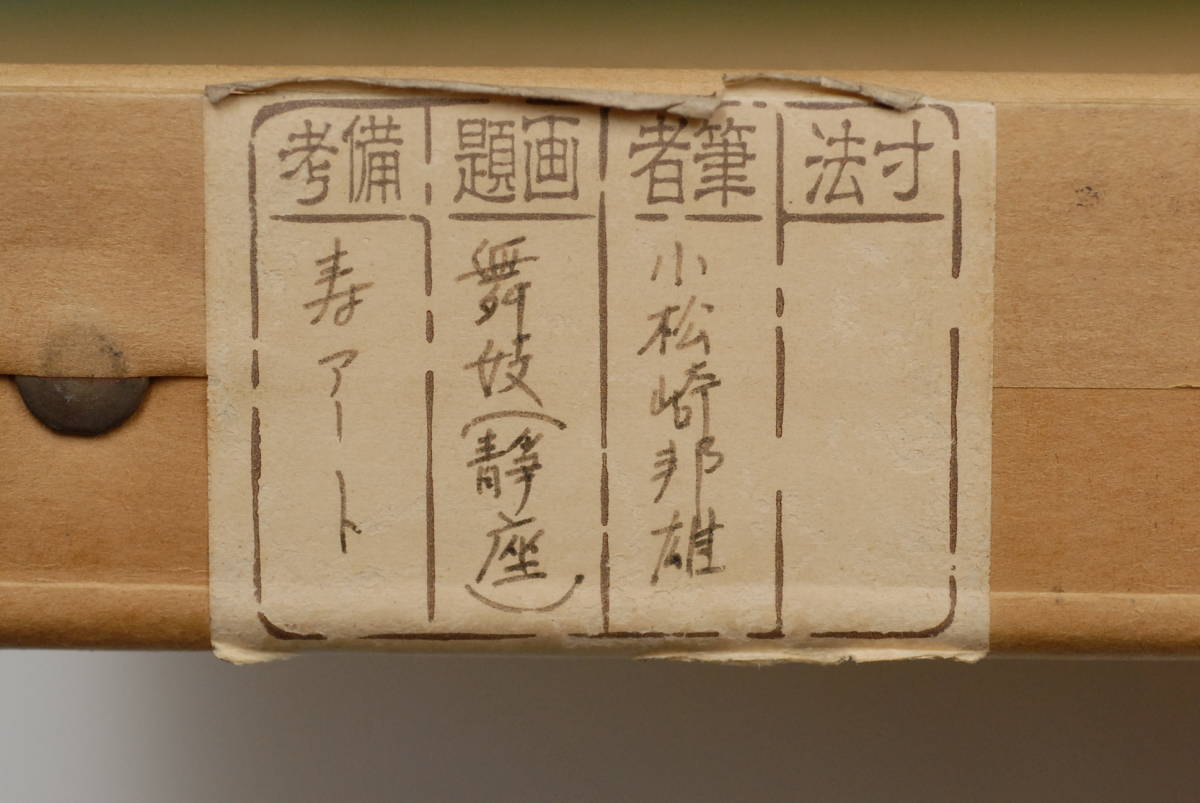 寸法
筆者
小松崎邦雄
画題
舞妓(静座)
備考
寿アート